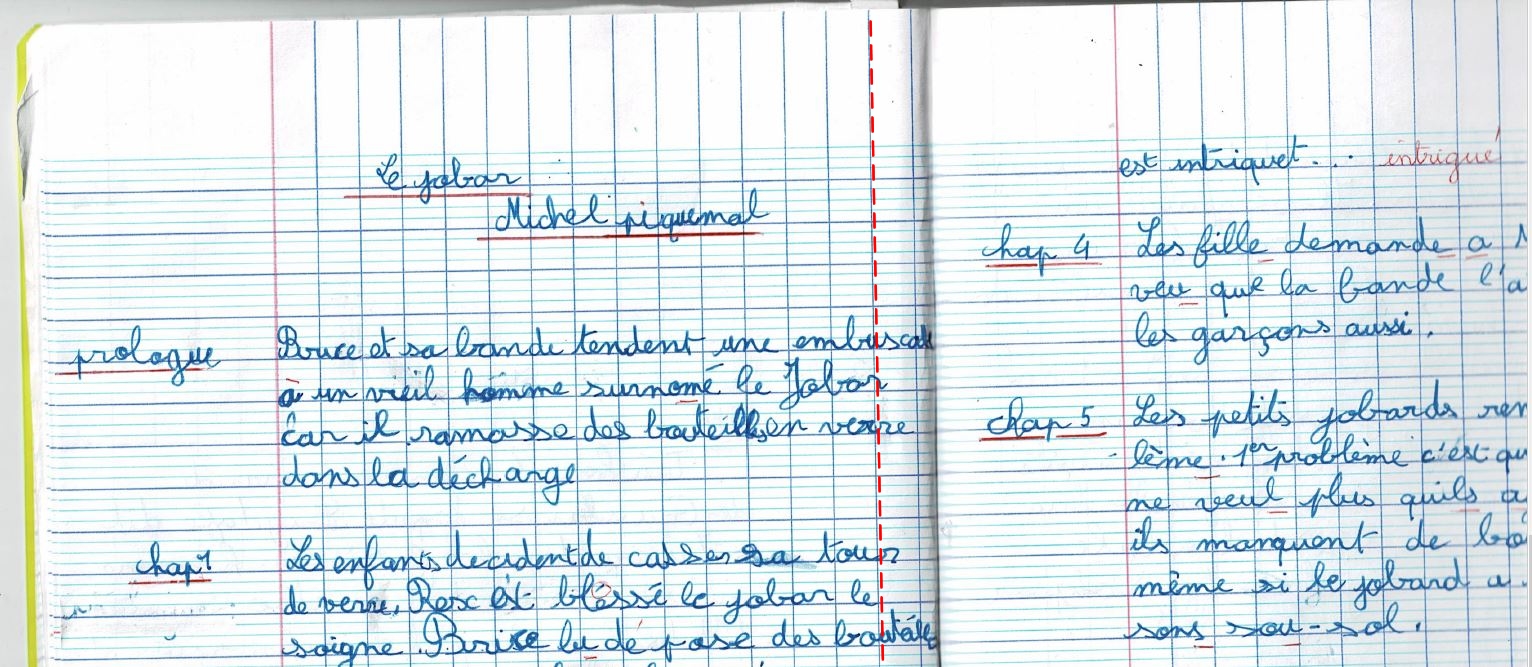 Le jobar
Michel piquemal
prologue
Bruce et sa bande tendent une embuscade
à un vieil homme surnomé le Jobar
car il ramasse des bouteilles en verre
dans la déchange
chap 1
Les enfants decident de casser sa tour
de verre. Rex est blessé le jobar le
soigne. Bruce lu dé pose des
est intriquet... intrigué
chap 4
Les fille demande a
veu que la bande l'a
les garçons aussi.
chap 5
Les petits jobards ren
lème. 1er problème c'est qu
ne veul plus quils a
ils manquont de bo
même si le jobard a
sons sou-sol.